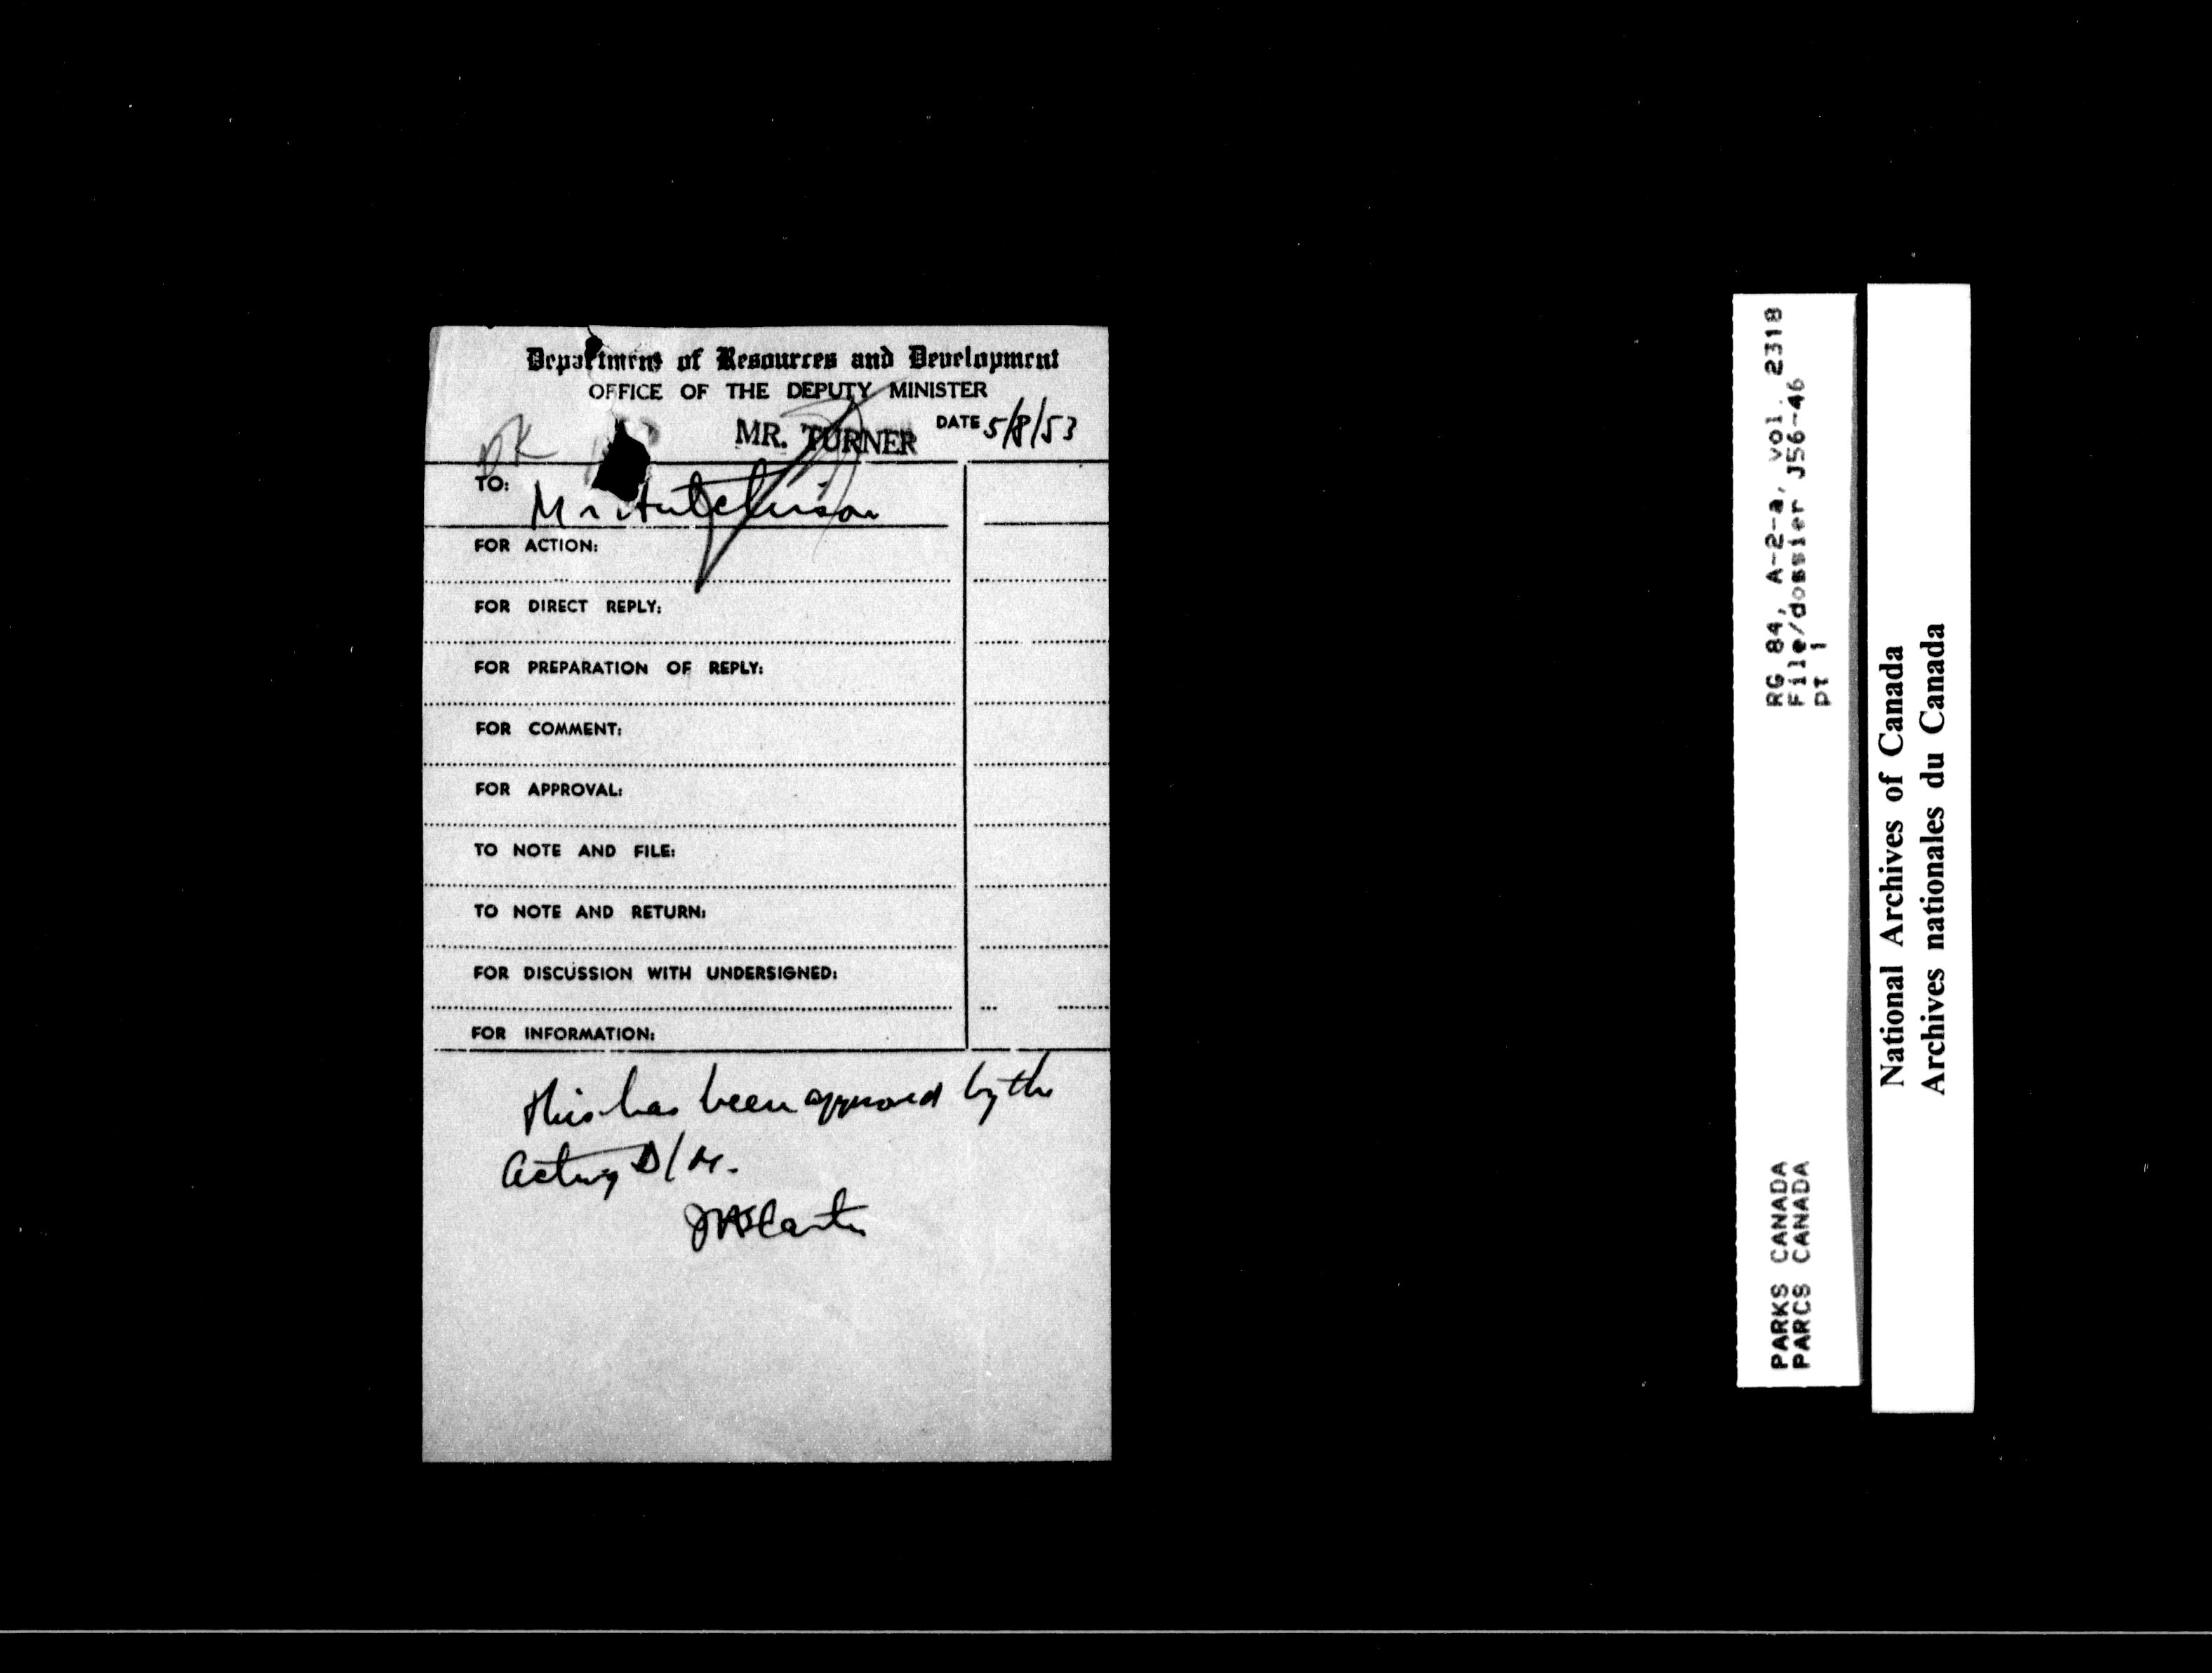 Department of Resources and Development
OFFICE OF THE DEPUTY MINISTER
MR. TURNER DATE 5/8/53
TO: Mr Hutchison
FOR ACTION:
FOR DIRECT REPLY:
FOR PREPARATION OF REPLY:
FOR COMMENT:
FOR APPROVAL:
TO NOTE AND FILE:
TO NOTE AND RETURN:
FOR DISCUSSION WITH UNDERSIGNED:
FOR INFORMATION:
This has been approved by the
Acting D/M.
RG 84, A-2-a, vol. 2318
File/dossier J56-46
pt 1
PARKS CANADA
PARCS CANADA
National Archives of Canada
Archives nationales du Canada